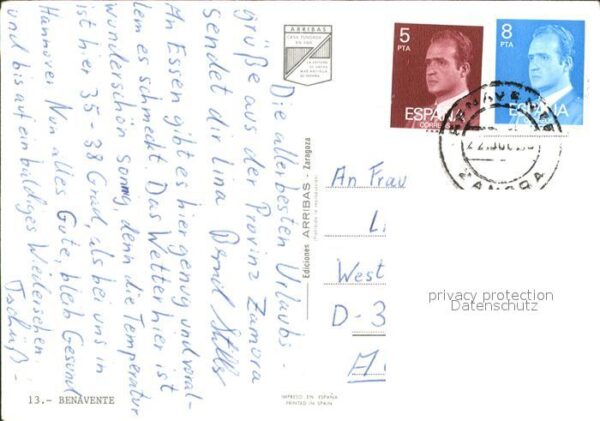 Die allerbesten Urlaubs-
grüße aus der Provinz Zamora
sendet dir Lina Bernd
An Essen gibt es hier genug und voral-
lem es schmeckt. Das Wetter hier ist
wunderschön sonnig, denn die Temperatur
ist hier 35-38 Grad, als bei uns in
Hannover. Nun alles Gute, bleib Gesund
und bis auf ein baldiges Wiedersehen.
Tschüß -
13.- BENAVENTE
ARRIBAS
CASA FUNDADA
Ediciones ARRIBAS - Zaragoza
IMPRESO EN ESPAÑA
PRINTED IN SPAIN
5
PTA
ESPAÑA
CORREOS
8
PTA
ESPAÑA
BENAVENTE
ZAMORA
An Frau
L
West
D-3
privacy protection
Datenschutz